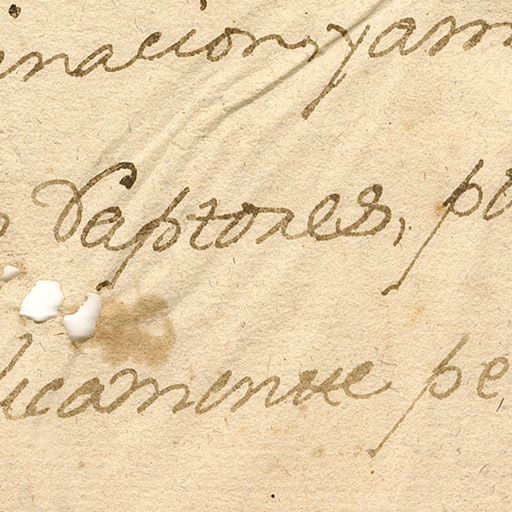 inacion, y am
Raptores, po
licamente pe